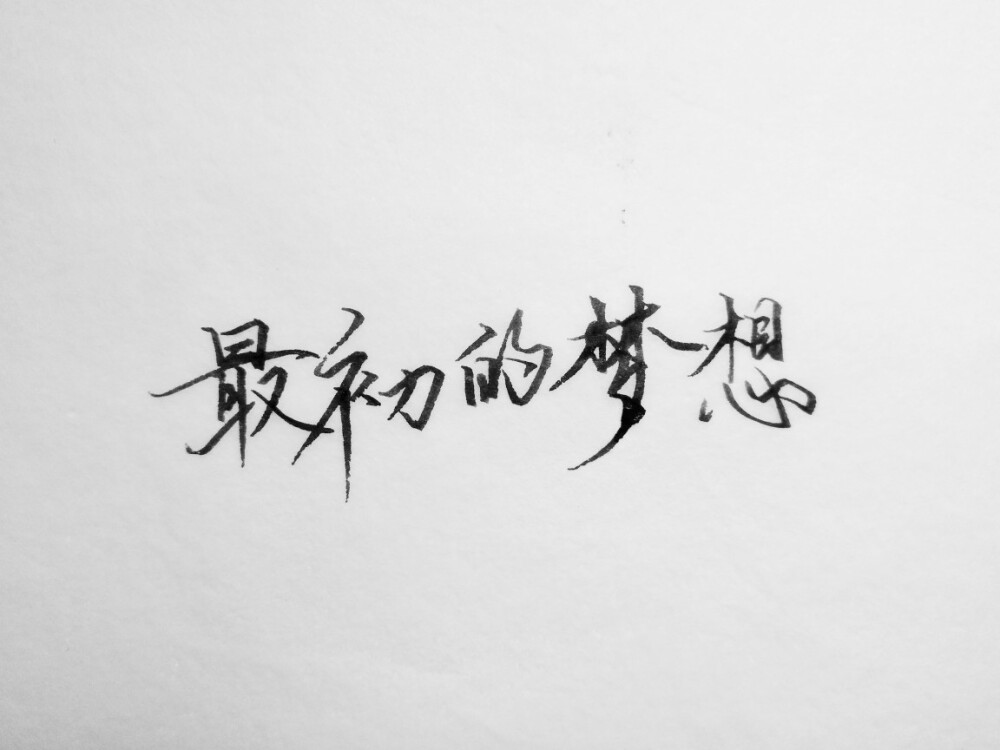 最初的梦想